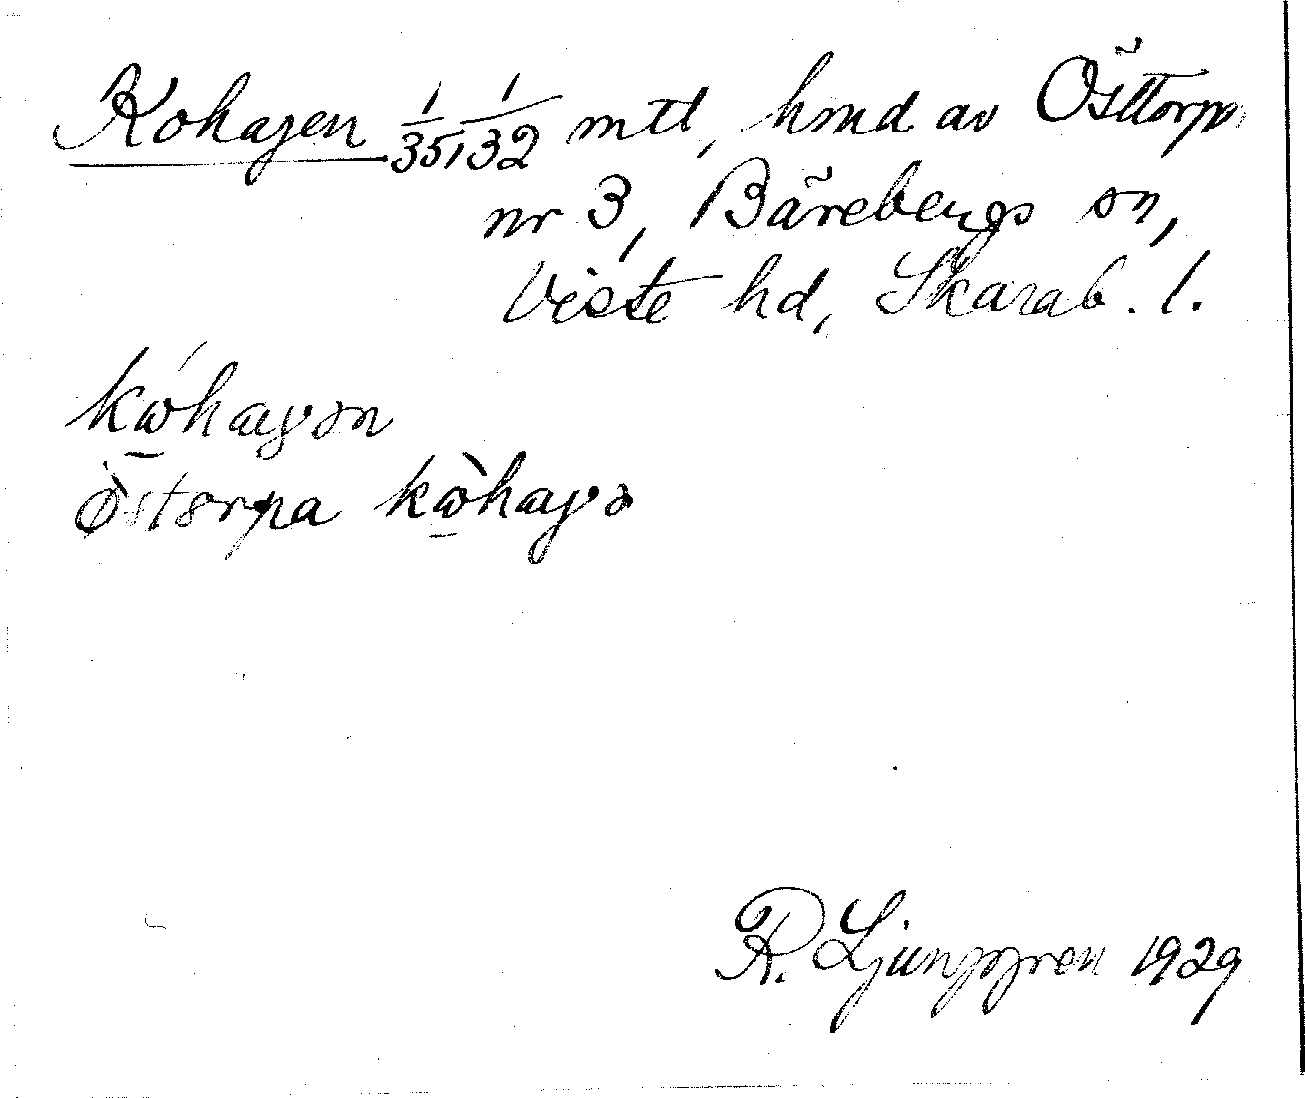 Kohagen 1/35, 1/32 mtl, hmd av Östtorp
nr 3, Bärebergs sn,
Viste hd, Skarab. l.
kώ̲haɣən
ø̀stərpa kὼ̲haɣə
R. Ljunggren 1929